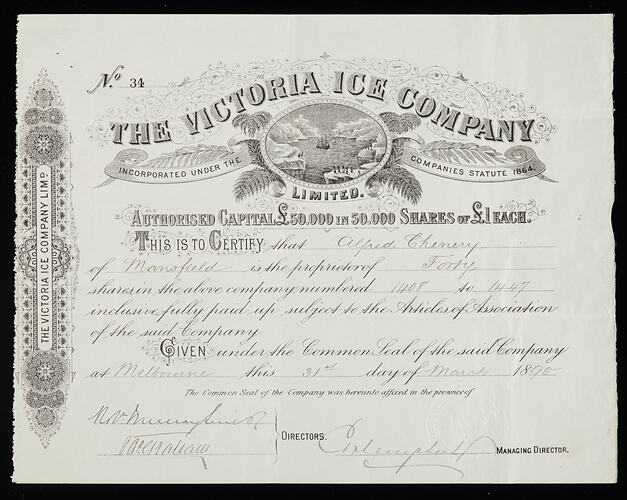 No. 34
THE VICTORIA ICE COMPANY
INCORPORATED UNDER THE COMPANIES STATUTE 1864.
LIMITED.
AUTHORISED CAPITAL £50.000 IN 50.000 SHARES OF £1 EACH.
THIS IS TO CERTIFY that Alfred Chenery
of Mansfield is the proprietor of Forty
shares in the above company numbered 1408 to 1447
inclusive fully paid up subject to the Articles of Association
of the said Company
GIVEN under the Common Seal of the said Company
at Melbourne this 31st day of March 1890
The Common Seal of the Company was hereunto affixed in the presence of
DIRECTORS.
MANAGING DIRECTOR.
THE VICTORIA ICE COMPANY LIMD